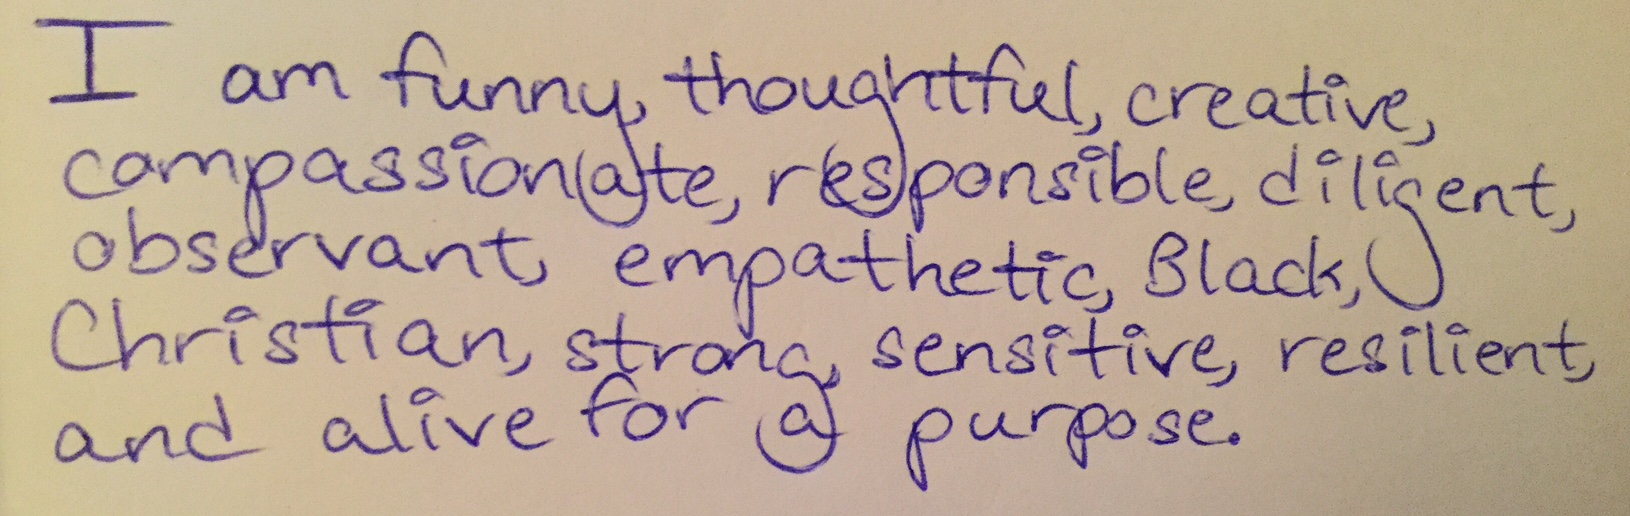 I am funny, thoughtful, creative,
compassionate, responsible, diligent,
observant, empathetic, Black,
Christian, strong, sensitive, resilient,
and alive for a purpose.